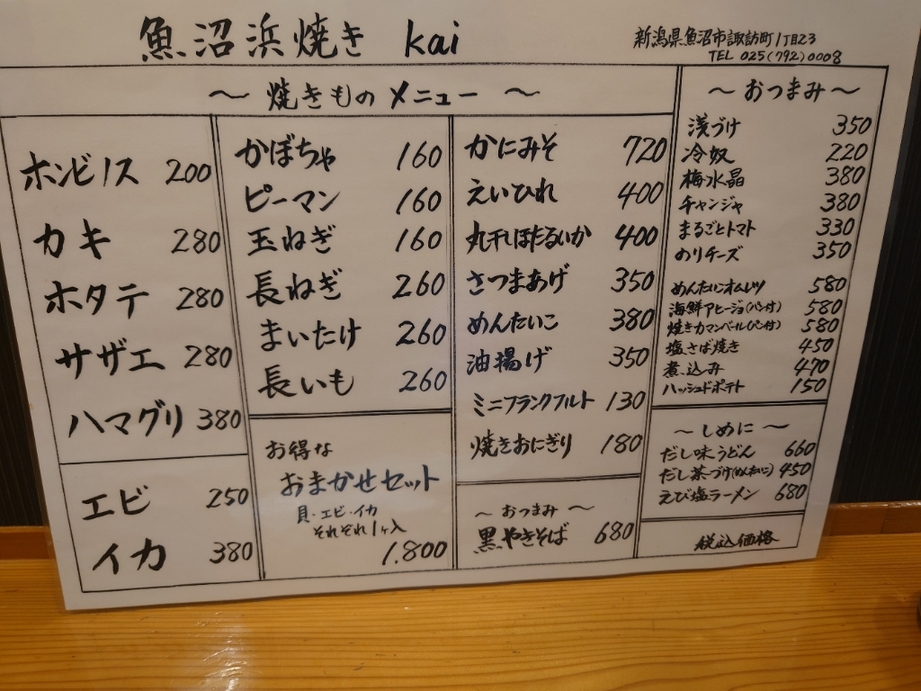 魚沼浜焼き kai
新潟県魚沼市諏訪町1丁目23
TEL 025(792)0008
～ 焼きものメニュー ～
ホンビノス 200
カキ 280
ホタテ 280
サザエ 280
ハマグリ 380
エビ 250
イカ 380
かぼちゃ 160
ピーマン 160
玉ねぎ 160
長ねぎ 260
まいたけ 260
長いも 260
お得な
おまかせセット
貝・エビ・イカ
それぞれ1ヶ入
1,800
かにみそ 720
えいひれ 400
丸干しほたるいか 400
さつまあげ 350
めんたいこ 380
油揚げ 350
ミニフランクフルト 130
焼きおにぎり 180
～ おつまみ ～
黒やきそば 680
～ おつまみ ～
浅づけ 350
冷奴 220
梅水晶 380
チャンジャ 380
まるごとトマト 330
のりチーズ 350
めんたいこオムレツ 580
海鮮アヒージョ(パン付) 580
焼きカマンベール(パン付) 580
塩さば焼き 450
煮込み 470
ハッシュドポテト 150
～ しめに ～
だし味うどん 660
だし茶づけ(めんたいこ) 450
えび塩ラーメン 680
税込価格